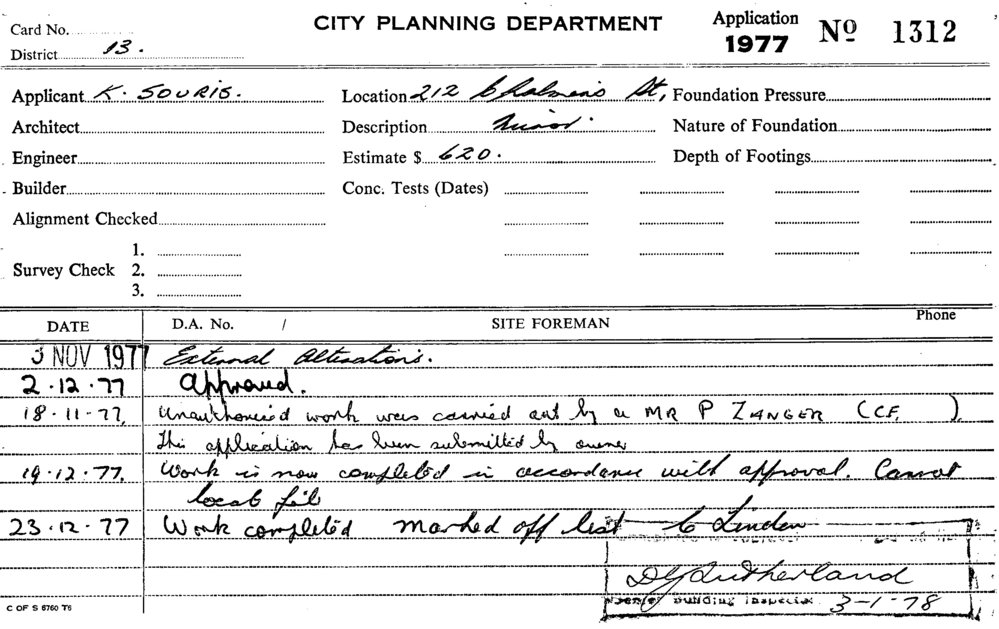 Card No.
CITY PLANNING DEPARTMENT
Application
1977
Nº 1312
District 13.
Applicant K. SOURIS.
Location 212 Chalmers St,
Foundation Pressure
Architect
Description Minor.
Nature of Foundation
Engineer
Estimate $ 620.
Depth of Footings
Builder
Conc. Tests (Dates)
Alignment Checked
1.
Survey Check 2.
3.
DATE D.A. No. / SITE FOREMAN Phone
3 NOV 1977 External Alterations.
2.12.77 Approved.
18-11-77. Unauthorised work was carried out by a MR P ZANGER (CF. ).
This application has been submitted by owner
19.12.77. Work is now completed in accordance with approval. Cannot
locate file
23.12.77 Work completed marked off list C Linden
Sutherland
building inspector 3-1-78
C OF S 6760 T6